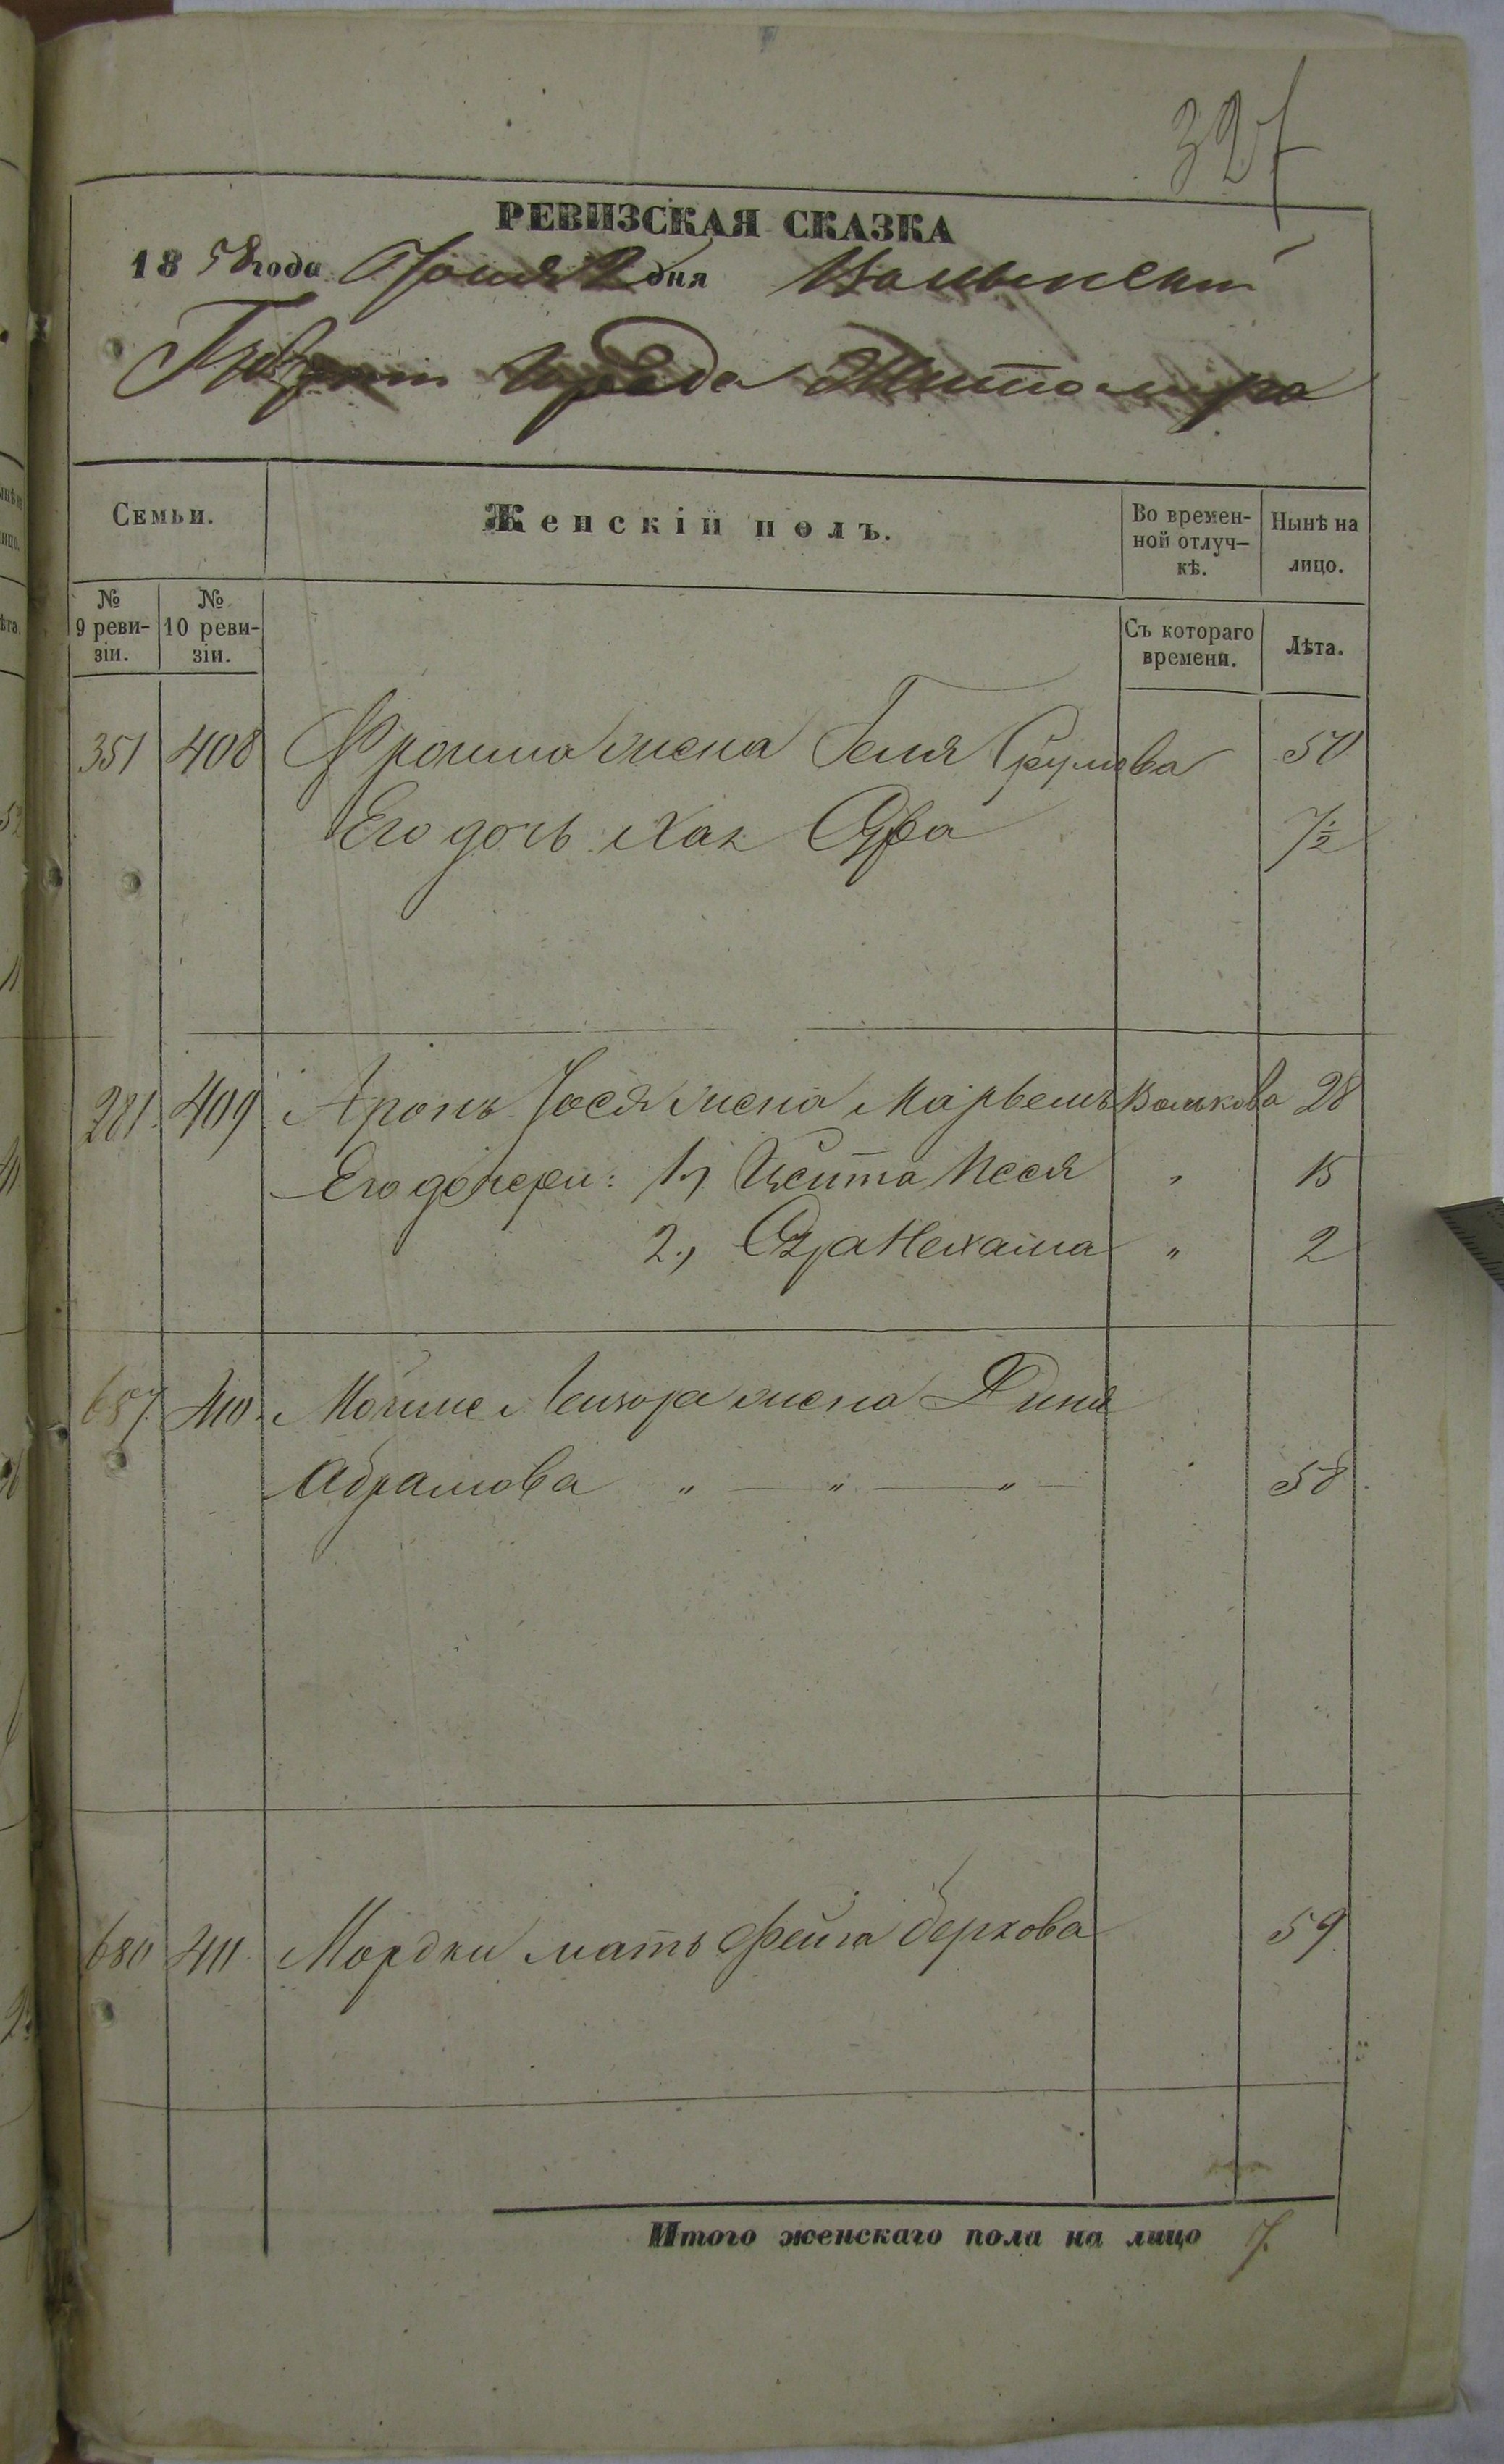 327
РЕВИЗСКАЯ СКАЗКА
1858 года Іюня 2 дня Волынской
Губерніи Города Житомира
Семьи.
Женскій полъ.
Во времен-
ной отлуч-
кѣ.
Нынѣ на
лицо.
№
9 реви-
зіи.
№
10 реви-
зіи.
Съ котораго
времени.
Лѣта.
351 408 Фроима жена Геля Срулева 50
Его дочь Хая 7½
281 409 Аронъ Іося жена Марьемъ Волькова 28
Его дочери: 1, Цейта Песя " 15
2., Нехама " 2
657 410 Мошке Лейзора жена Диня
Абрамова " — " — " — 58
680 411 Мордки мать Фейга Беркова 59
Итого женскаго пола на лицо 7.